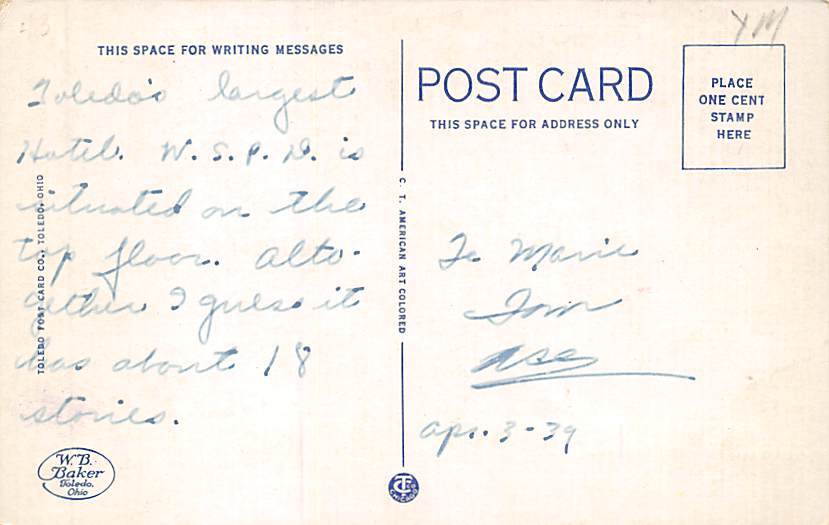 THIS SPACE FOR WRITING MESSAGES
Toledo's largest
Hotel. W.S.P.D. is
situated on the
top floor. Alto-
gether I guess it
has about 18
stories.
TOLEDO POST CARD CO., TOLEDO, OHIO
W.B.
Baker
Toledo,
Ohio
C. T. AMERICAN ART COLORED
CT
CHICAGO
POST CARD
THIS SPACE FOR ADDRESS ONLY
PLACE
ONE CENT
STAMP
HERE
To Marie
Tom
Apr. 3-39